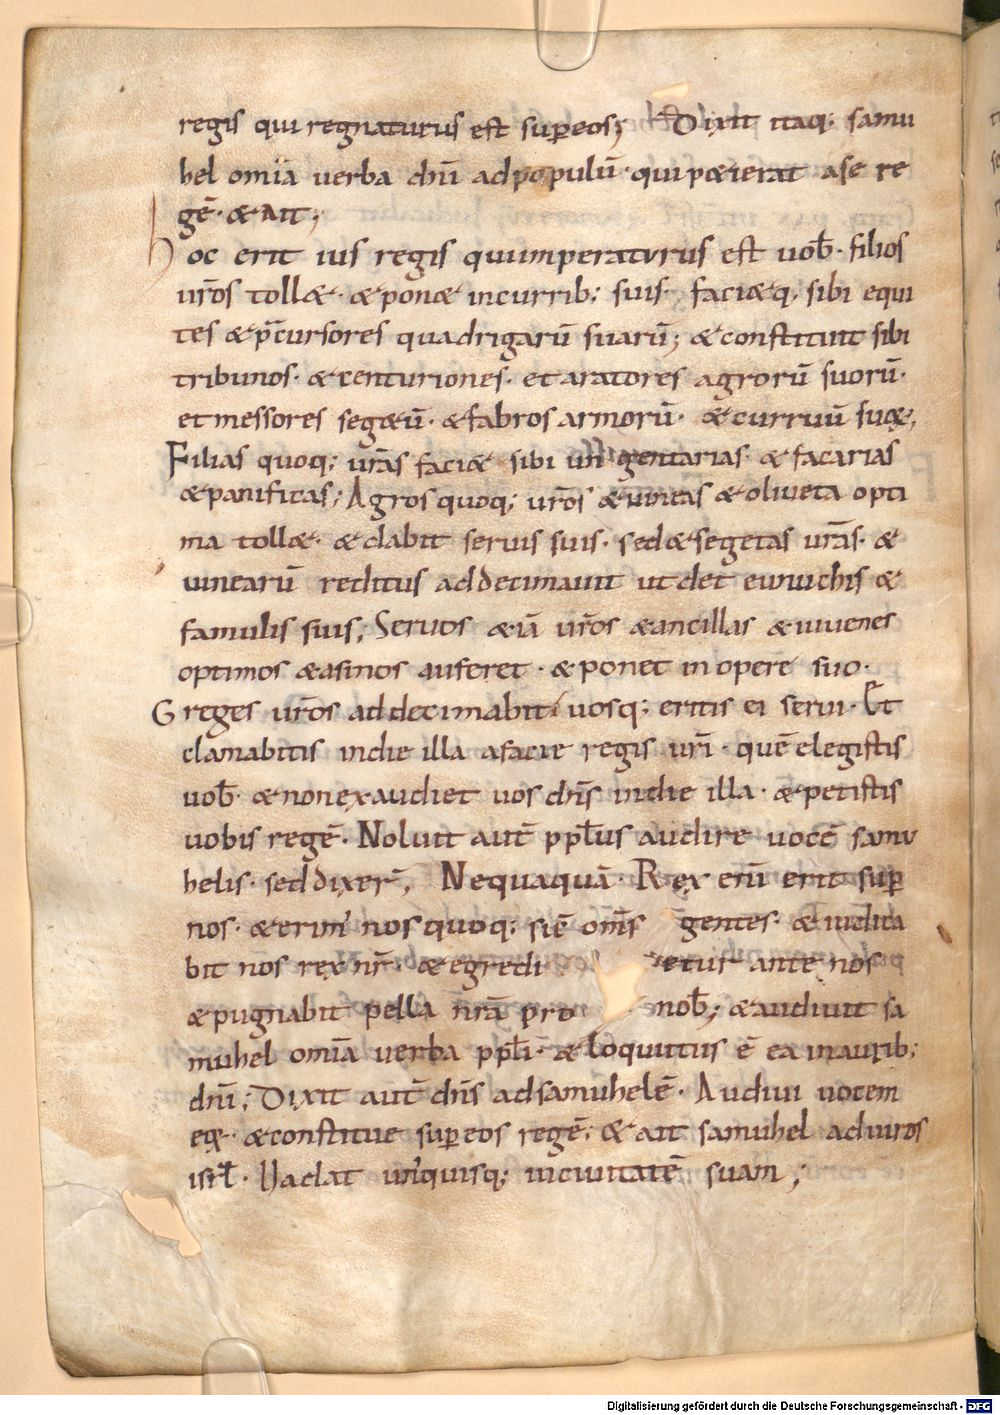 regis qui regnaturus est sup̄ eos; Dixit itaq; samu
hel omīa verba dn̄i ad populū · qui p&ierat a se re
gē · & ait;
hoc erit ius regis qui imperaturus est uob̄ · filios
ur̄os toll& · & pon& in currib; suis · faci&q; sibi equi
tes & p̄cursores quadrigarū suarū; & constituit sibi
tribunos · & centuriones · et aratores agrorū suorū ·
et messores seg&ū · & fabros armorū · & curruū suoꝝ;
Filias quoq; ur̄as faci& sibi ungentarias · & focarias
& panificas; Agros quoq; ur̄os & uineas & oliueta opti
ma toll& · & dabit seruis suis · sed & segetas ur̄as · &
uinearū reditus addecimauit ut det eunuchis &
famulis suis; Seruos &iā ur̄os & ancillas & iuuenes
optimos & asinos auferet · & ponet in opere suo ·
Greges ur̄os addecimabit; uosq; eritis ei serui · Et
clamabitis in die illa a facie regis ur̄i · quē elegistis
uob̄ · & non exaudiet uos dn̄s in die illa · & petistis
uobis regē · Noluit aut̄ ppl̄us audire uocē samu
helis · sed dixer̄; Nequaquā · Rex eni̅ erit sup̄
nos · & erim' nos quoq; sic̄ om̄s gentes · & iudica
bit nos rex nr̄ · & egredi etur ante nos
& pugnabit pella nr̄a pro nob̄; & audiuit sa
muhel omīa uerba ppl̄i · & loquutus ē ea in aurib;
dn̄i; Dixit aut̄ dn̄s ad samuhelē · Audi uocem
eoꝝ · & constitue sup̄ eos regē; & ait samuhel ad uiros
isrl̄ · Uadat un'quisq; in ciuitatē suam;
Digitalisierung gefördert durch die Deutsche Forschungsgemeinschaft - DFG